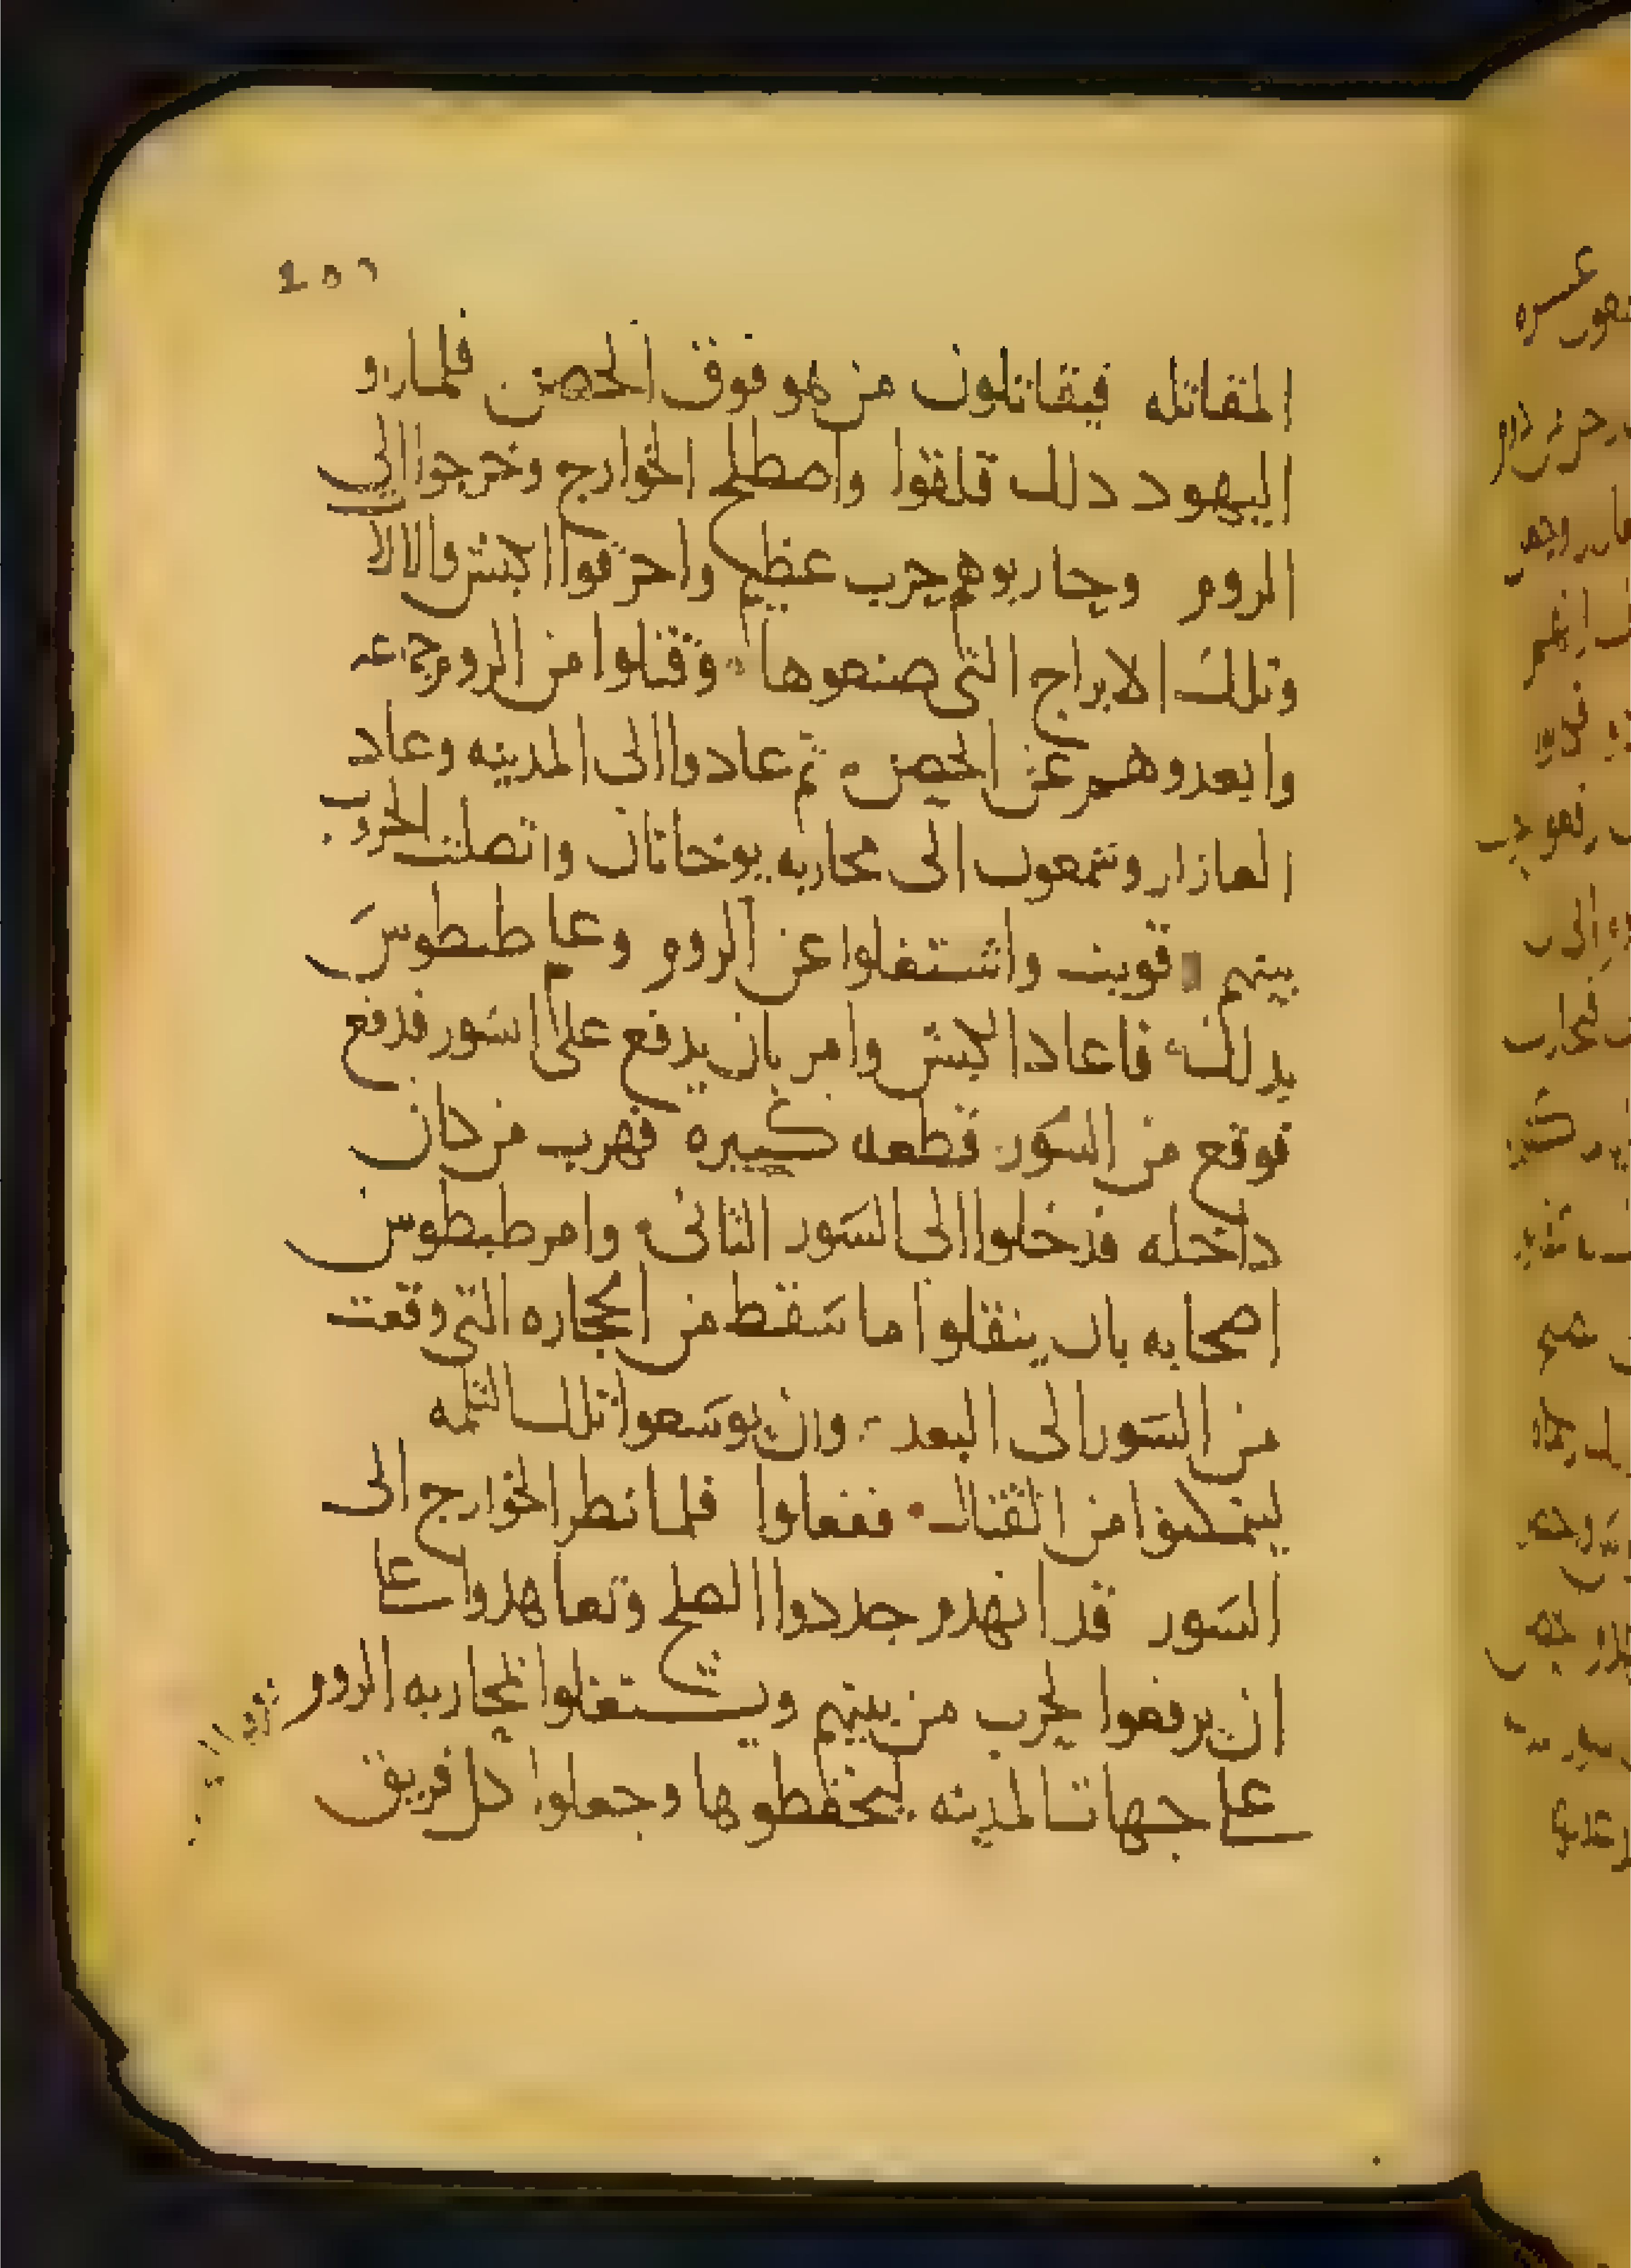 المقاتله فيقاتلون من هو فوق الحصن فلما راو
اليهود دلك قلقوا واصطلح الخوارج وخرجوا الي
الروم وحاربوهم حرب عظيم واحرقوا الكبش والالا
وتلك الابراج التى صنعوها وقتلوا من الروم جماعه
وابعدوهم عن الحصن ثم عادوا الى المدينه وعاد
العازار وشمعون الى محاربه يوخانان واتصلت الحروب
بينهم قويت واشتغلوا عن الروم وعلم طيطوس
بدلك فاعاد الكبش وامر بان يدفع على السور فدفع
فوقع من السور قطعه كبيره فهرب من كان
داخله فدخلوا الى السور الثانى وامر طيطوس
اصحابه بان ينقلوا ما سقط من الحجاره التي وقعت
من السور الى البعد وان يوسعوا تلك الثلمه
ليتمكنوا من القتال ففعلوا فلما نظر الخوارج الى
السور قد انهدم جددوا الصلح وتعاهدوا على
ان يرفعوا الحرب من بينهم ويشتغلوا لمحاربه الروم
على جهات المدينه ليحفظوها وجعلوا كل فريق